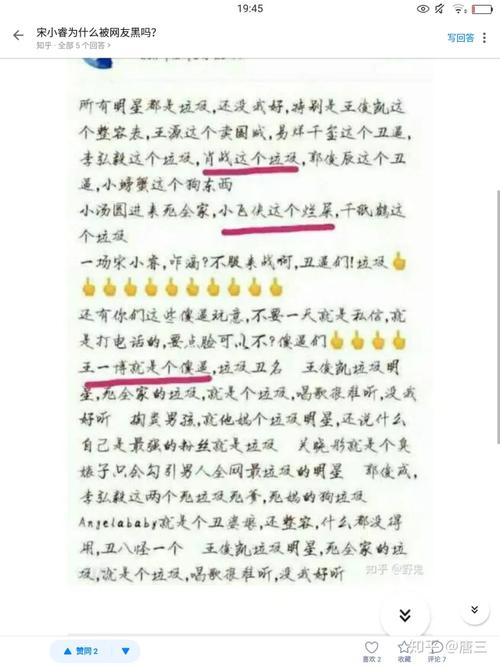 19:45
宋小睿为什么被网友黑吗?
知乎 · 全部 5 个回答 >
写回答
所有明星都是垃圾,还没我好,特别是王俊凯这
个整容表,王源这个卖国贼,易烊千玺这个丑逼,
李弘毅这个垃圾,肖战这个垃圾,郭俊辰这个丑
逼,小螃蟹这个狗东西
小汤圆进来死全家,小飞侠这个烂屎,千纸鹤这
个垃圾
一场宋小睿,咋滴?不服来战啊,丑逼们!垃圾🖕
🖕🖕🖕🖕🖕🖕🖕🖕🖕🖕
还有你们这些傻逼玩意,不要一天就是私信,就
是打电话的,要点脸可以不?傻逼们🖕🖕🖕🖕
王一博就是个傻逼,垃圾丑名 王俊凯垃圾明
星,死全家的垃圾,就是个垃圾,唱歌很难听,没我
好听 掏粪男孩,就他媽个垃圾明星,还说什么
自己是最强的粉丝就是垃圾 关晓彤就是个臭
婊子只会勾引男人全网最垃圾的明星 郭俊
李弘毅这两个死垃圾死爹,死媽的狗垃圾
Angelababy就是个丑婆娘,还整容,什么都没得
用,丑八怪一个 王俊凯垃圾明星,死全家的垃
圾,就是个垃圾,唱歌很难听,没我好听
知乎 @野鬼
赞同 2
喜欢 2
收藏
评论 7
知乎 @唐三